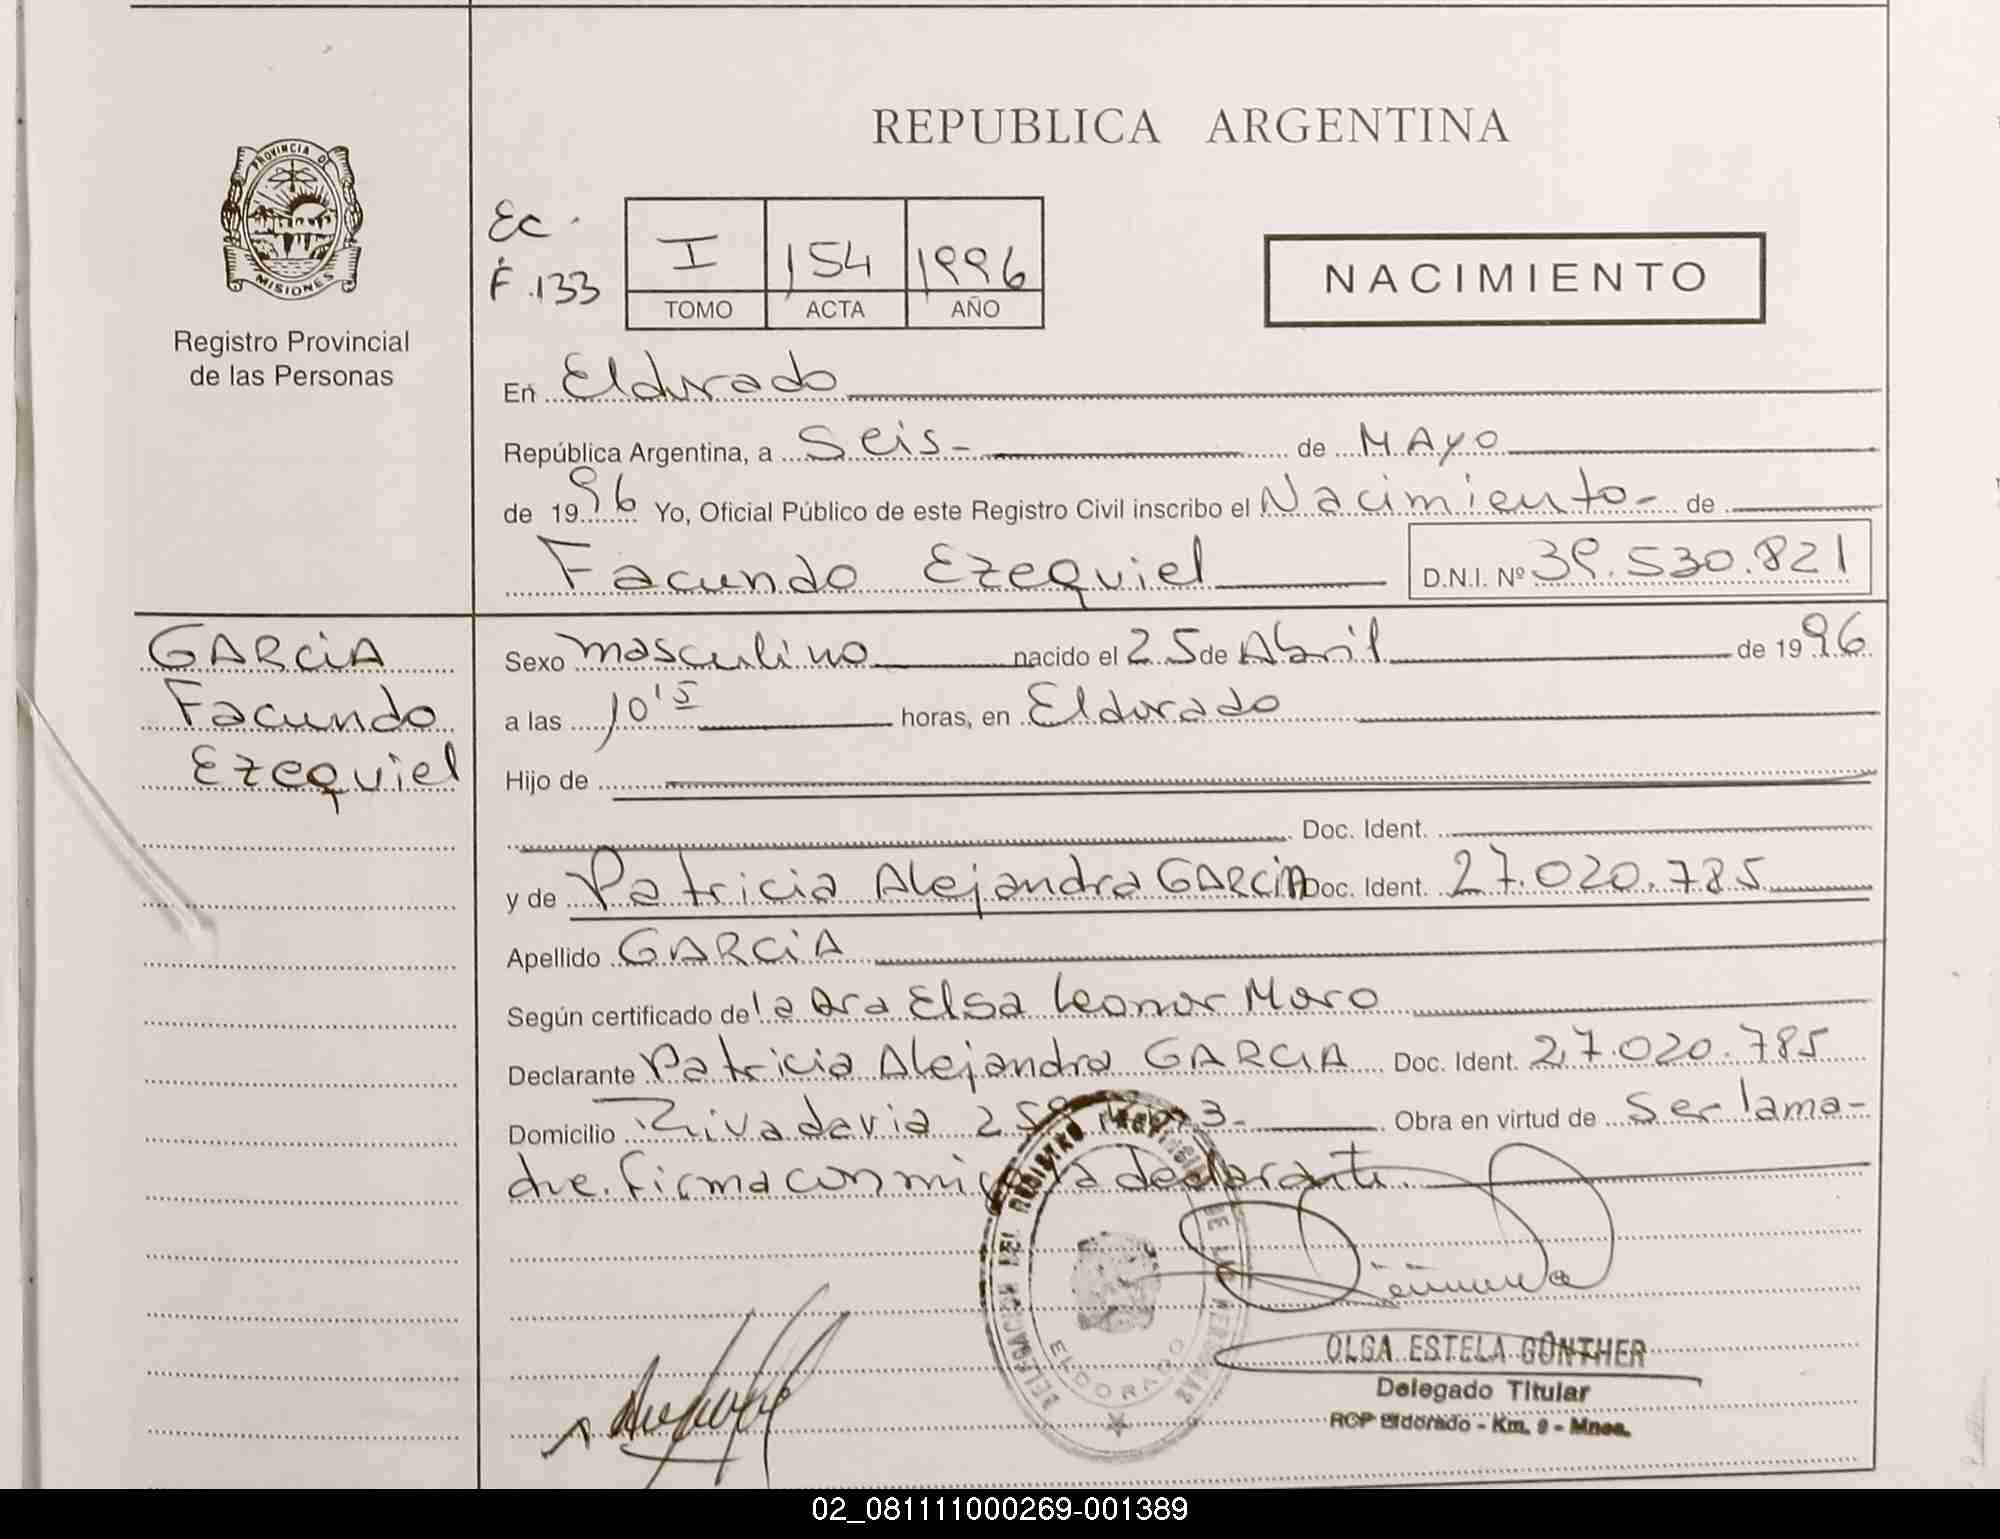 REPUBLICA ARGENTINA
PROVINCIA DE
MISIONES
Registro Provincial
de las Personas
Ec.
F.133
I 154 1996
TOMO ACTA AÑO
NACIMIENTO
En Eldorado
República Argentina, a Seis- de MAyo
de 1996 Yo, Oficial Público de este Registro Civil inscribo el Nacimiento- de
Facundo Ezequiel D.N.I. Nº 39.530.821
GARCiA
Facundo
Ezequiel
Sexo masculino nacido el 25 de Abril de 1996
a las 10'5 horas, en Eldorado
Hijo de
Doc. Ident.
y de Patricia Alejandra GARCiA Doc. Ident. 27.020.785
Apellido GARCiA
Según certificado de la Dra Elsa Leonor Moro
Declarante Patricia Alejandra GARCIA Doc. Ident. 27.020.785
Domicilio Rivadavia Obra en virtud de Ser la ma-
dre. firma conmigo la declarante.
DELEGACION DEL REGISTRO PROVINCIAL DE LAS PERSONAS
ELDORADO
OLGA ESTELA GÜNTHER
Delegado Titular
RCP Eldorado - Km. 9 - Mnes.
02_081111000269-001389